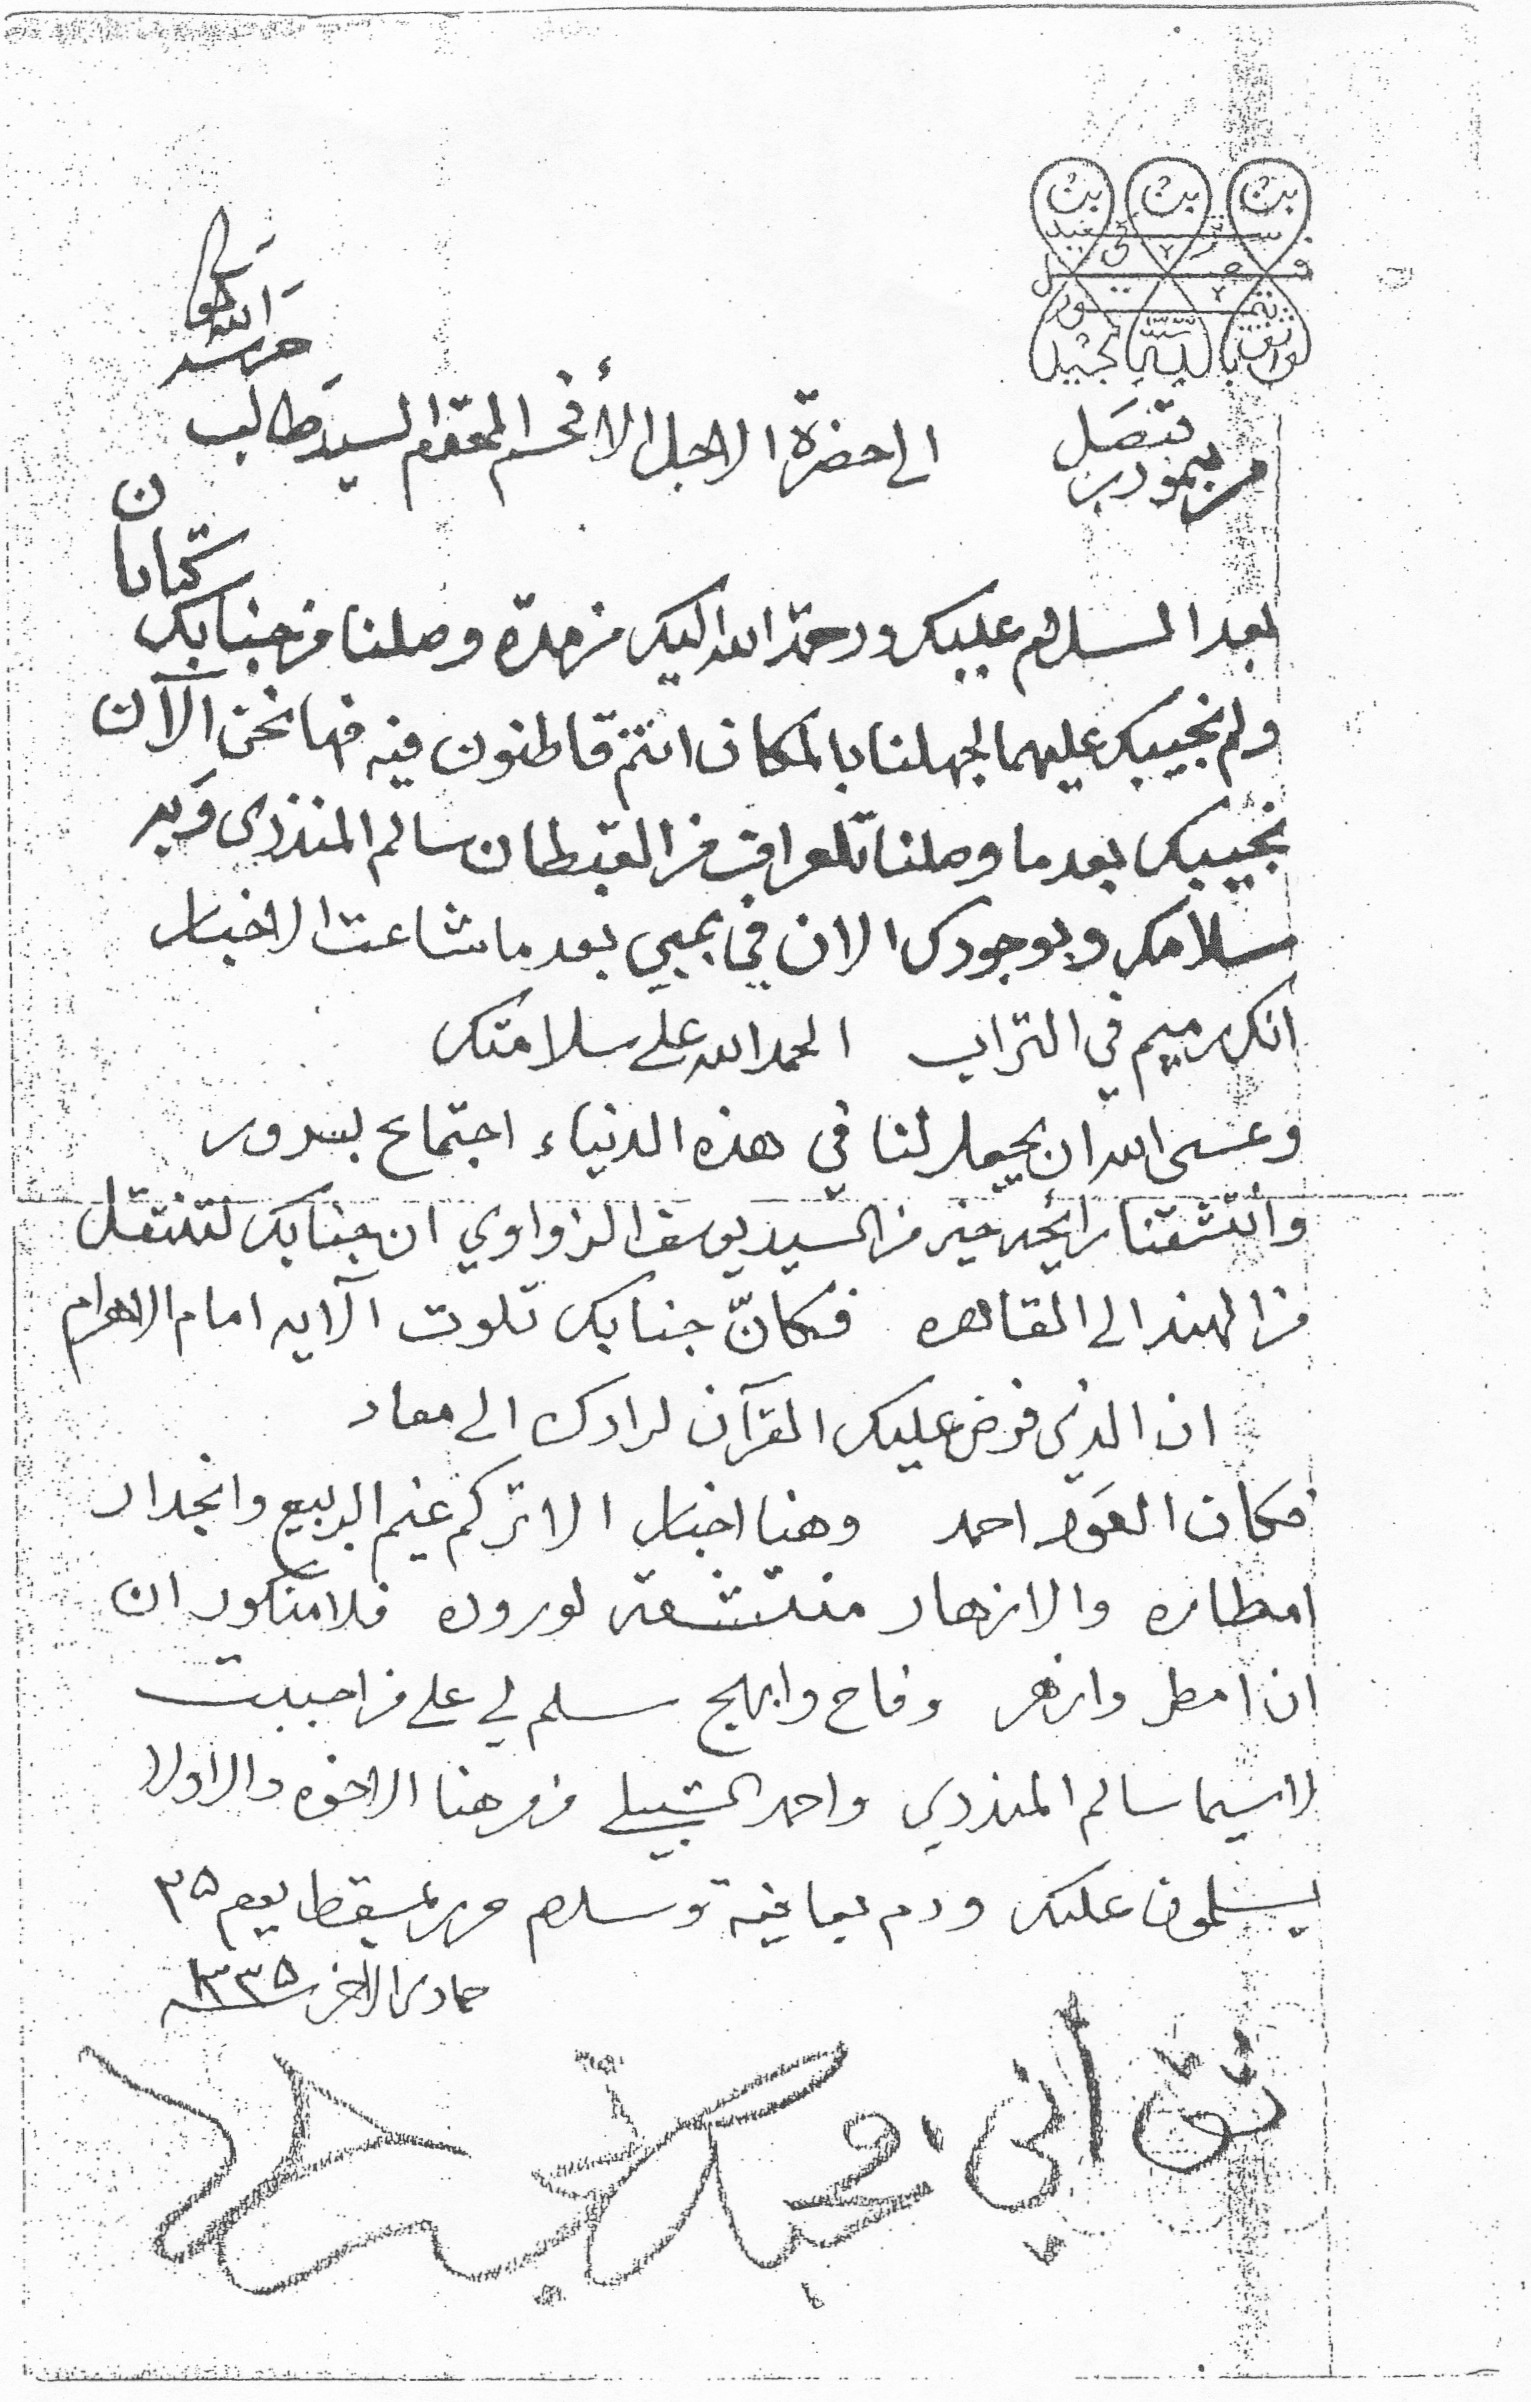 بن بن بن
فيصل تركي سعيد
تيمور
الواثق بالله المجيد
من تيمور بن فيصل
الى حضرة الاجل الأفخم المقدام السيد طالب
حرسه الله
كتابان
بعد السلام عليك ورحمة الله اليك من مدة وصلنا من جنابك
ولم نجيبك عليهما لجهلنا بالمكان انتم قاطنون فيه فها نحن الآن
نجيبك بعد ما وصلنا تلغراف من القبطان سالم المنذري وبه
سلامك وبوجودك الان في بمبي بعد ما شاعت الاخبار
انك رميم في التراب الحمد الله على سلامتك
وعسى الله ان يجعل لنا في هذه الدنياء اجتماع بسرور
وانتشقنا رائحه خير من السيد يوسف الزواوي ان جنابك لتنتقل
من الهند الى القاهره فكانّ جنابك تلوت الآيه امام الاهرام
ان الذي فرض عليك القرآن لرادك الى معاد
فكان العود احمد وهنا اخبار الا تركم غيم الربيع وانجدار
امطاره والازهار منتشقه لوروده فلا منكور ان
ان امطر وازهر وفاح وابهج سلم لي على من احببت
لاسيما سالم المنذري واحمد الشبيلي ومن هنا الاخوه والاولاد
يسلمون عليك ودم بعافية وسلام حرر بمسقط يوم ٢٥
جمادى الاخر سنة ١٣٣٥
ثق اني محبك